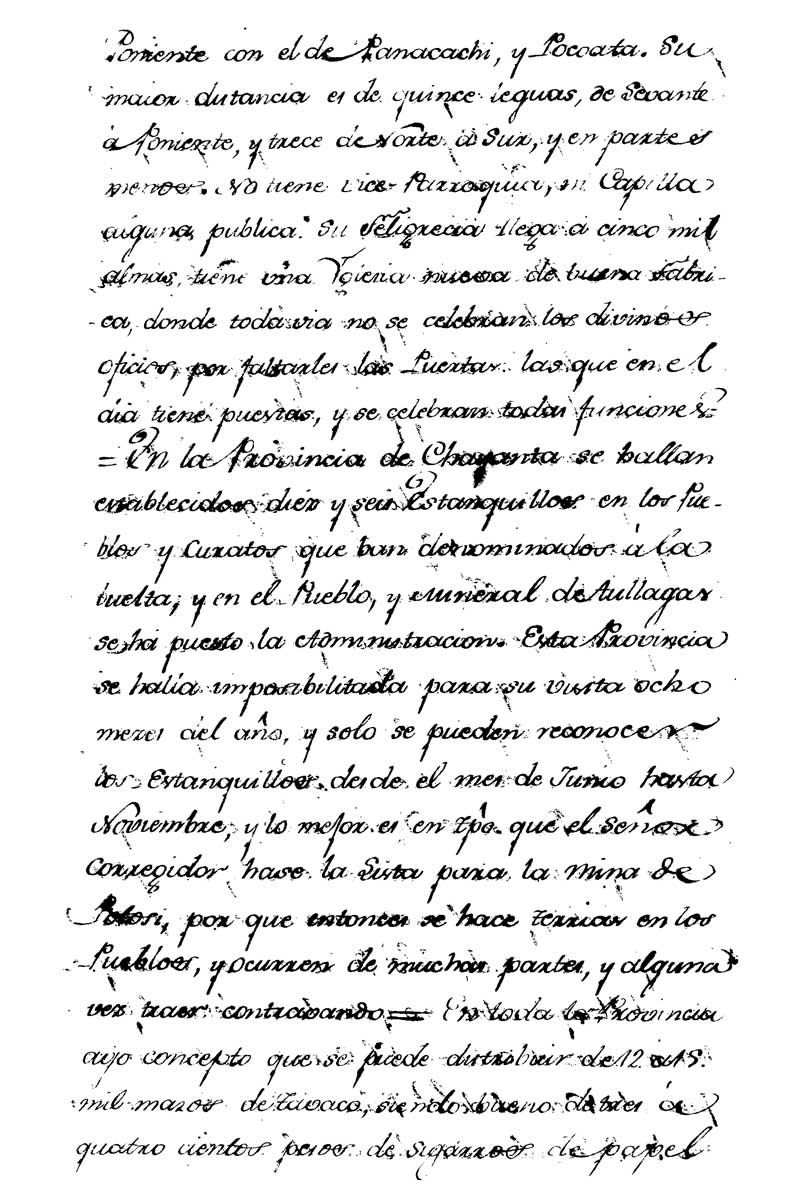 Poniente con el de Panacachi, y Pocoata. Su
maior distancia es de quince leguas, de Levante
à Poniente, y trece de Norte à Sur, y en partes
menos. No tiene vice-Parroquia, ni Capilla
alguna publica. Su feligrecia llega à cinco mil
almas, tiene vña Yglesia nueva de buena fabri-
-ca, donde toda via no se celebran los divinos
oficios, por faltarles las Puertas las que en el
dia tiene puestas, y se celebran todas funciones
= En la Provincia de Chayanta se hallan
establecidos diez y seis Estanquillos en los Pue-
blos y Curatos que ban denominados à la
buelta, y en el Pueblo, y Mineral de Aullagas
se ha puesto la Administracion. Esta Provincia
se halla imposibilitada para su visita ocho
meses del año, y solo se pueden reconocer
los Estanquillos desde el mes de Junio hasta
Noviembre, y lo mejor es en tpô. que el Señor
Corregidor hase la Lista para la mina de
Potosi, por que entonces se hace ferrias en los
Pueblos, y ocurren de muchas partes, y alguna
vez traer contravando = En toda la Provincia
ago concepto que se puede distribuir de 12 à 15.
mil mazos de tavaco, siendo bueno de tres à
quatro cientos pesos de sigarros de papel